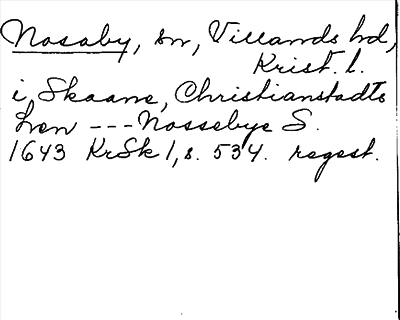 Nosaby, sn, Villands hd,
Krist. l.
i Skaane, Christianstadts
Len --- Nossebye S.
1643 KrSk 1, s. 534. regest.